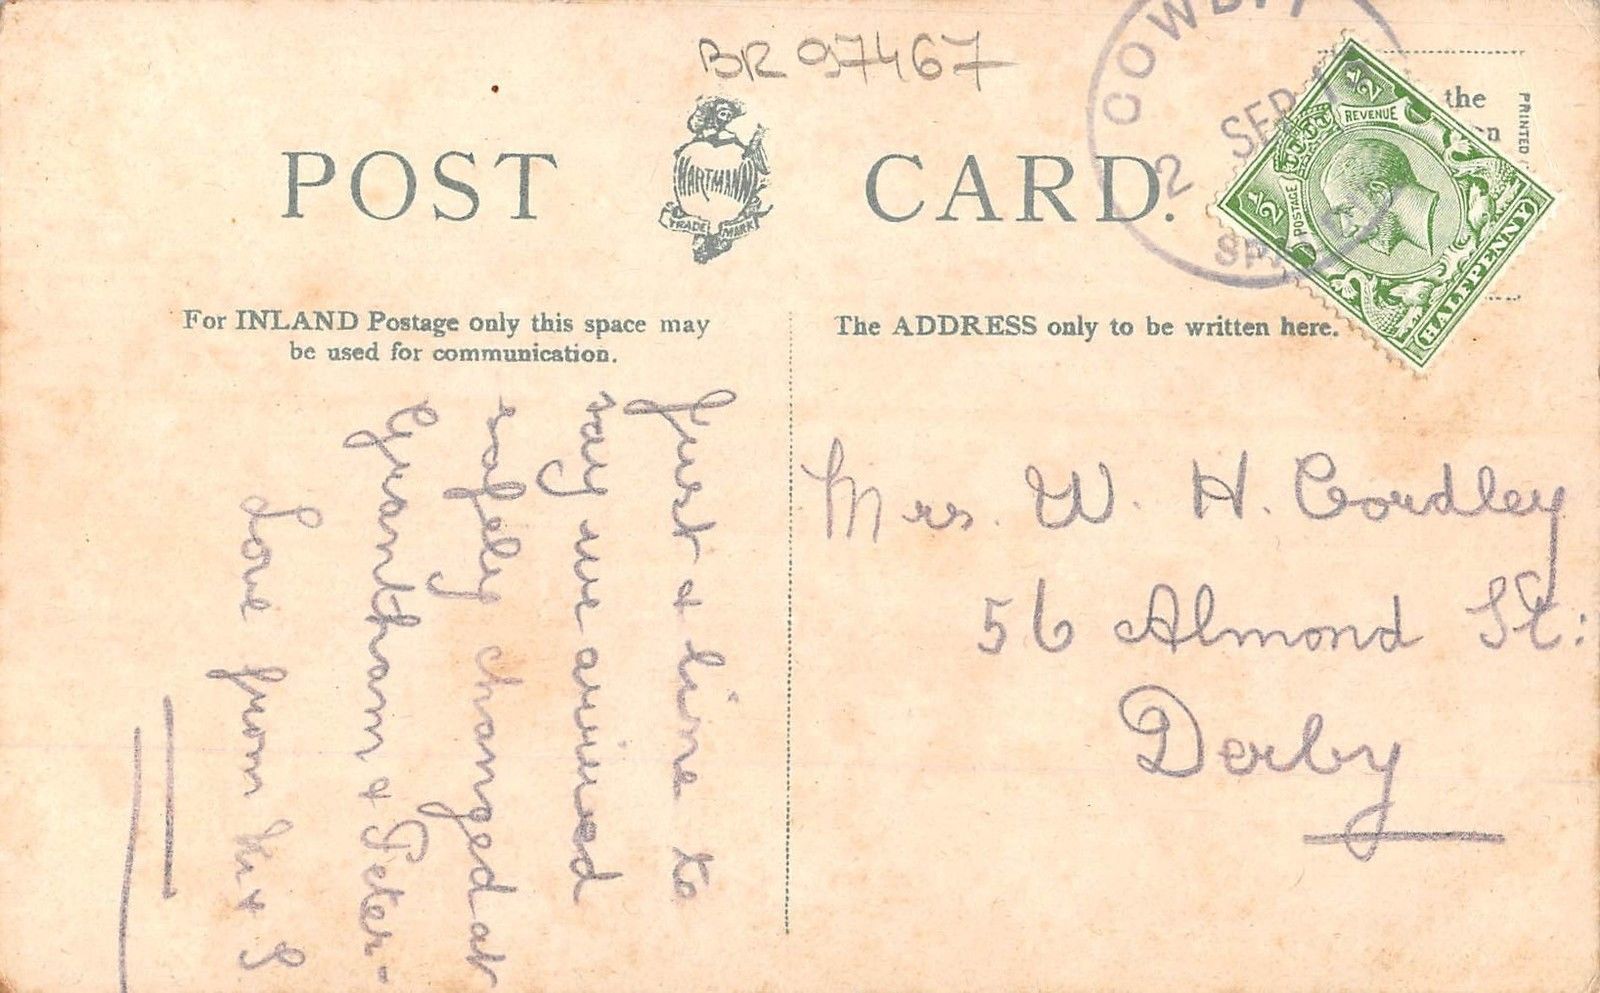 BR 97467
POST CARD.
HARTMANN
TRADE MARK
COWBIT
2 SEP 13
SPALDING
POSTAGE REVENUE
½ ½
HALFPENNY
the
PRINTED
For INLAND Postage only this space may
be used for communication.
The ADDRESS only to be written here.
Just a line to
say we arrived
safely changed at
Grantham & Peter-
Love from
Mrs. W. H. Cordley
56 Almond St:
Derby